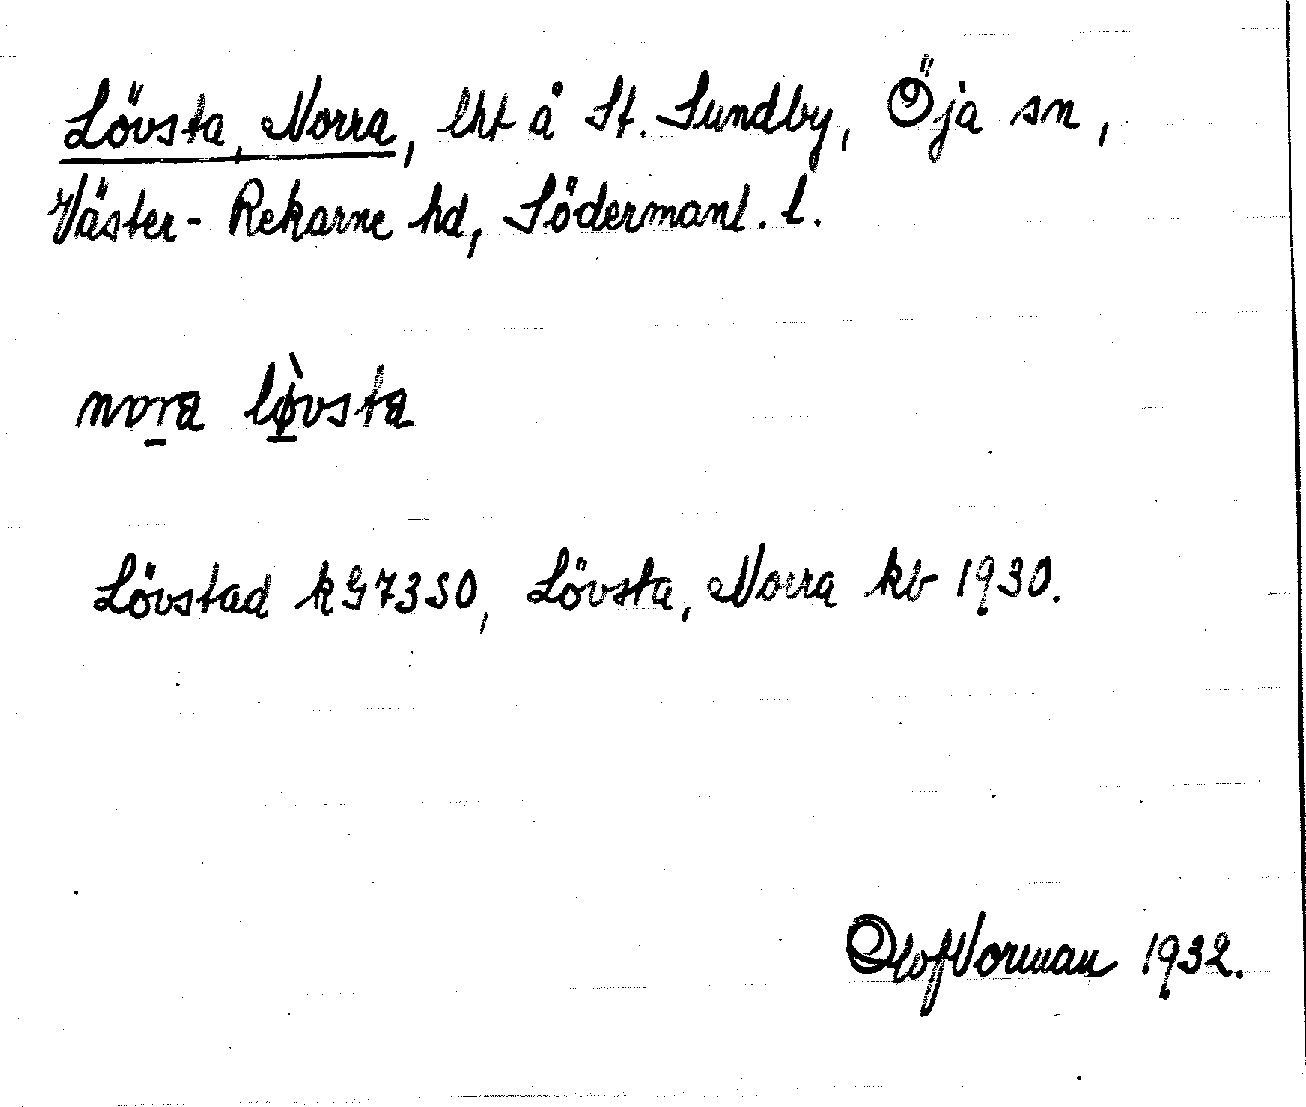 Lövsta, Norra, lht å St. Sundby, Öja sn,
Väster-Rekarne hd, Södermanl. l.
nora lø̀vsta
Lövstad kG7350, Lövsta, Norra kb 1930.
Olof Vorman 1932.